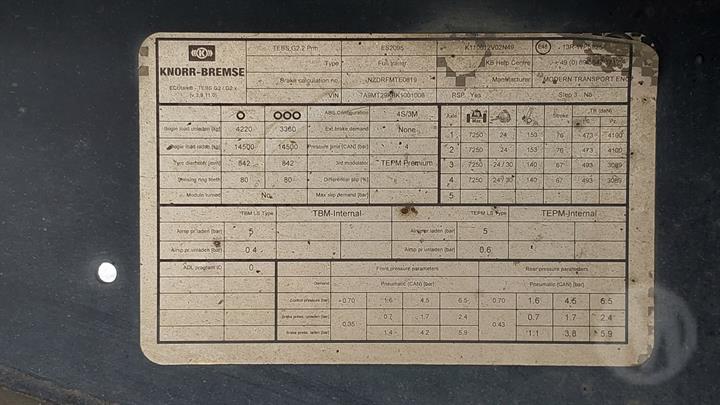 KNORR-BREMSE
TEBS G2.2 Prm ES2095
Type Full trailer KB Help Centre
Brake calculation no. NZDRFMTE0819 Manufacturer MODERN TRANSPORT ENG
VIN RSP Yes Step 3 - No
ABS Configuration 4S/3M Axle Stroke TR (daN)
Bogie load unladen [kg] 4220 3360 Ext. brake demand None 1 7250 24 153 76 473 4100
Bogie load laden [kg] 14500 14500 Pressure limit [CAN] [bar] 4 2 7250 24 153 76 473 4100
Tyre diameter [mm] 842 842 3rd modulator TEPM Premium 3 7250 24 / 30 140 67 493 3089
Sensing ring teeth 80 80 Differential slip [%] 4 7250 24 / 30 140 67 493 3089
Module turned No Max slip demand [bar] 5
TBM LS Type TBM-Internal TEPM LS Type TEPM-Internal
Airsp pr.laden [bar] 5 Airsp pr.laden [bar] 5
Airsp pr.unladen [bar] 0.4 Airsp pr.unladen [bar] 0.6
ADL program IC 0 Front pressure parameters Rear pressure parameters
Demand Pneumatic (CAN) [bar] Pneumatic (CAN) [bar]
Control pressure [bar] 0.70 1.6 4.5 6.5 0.70 1.6 4.5 6.5
Brake press. unladen [bar] 0.35 0.7 1.7 2.4 0.43 0.7 1.7 2.4
Brake press. laden [bar] 1.4 4.2 5.9 1.1 3.8 5.9